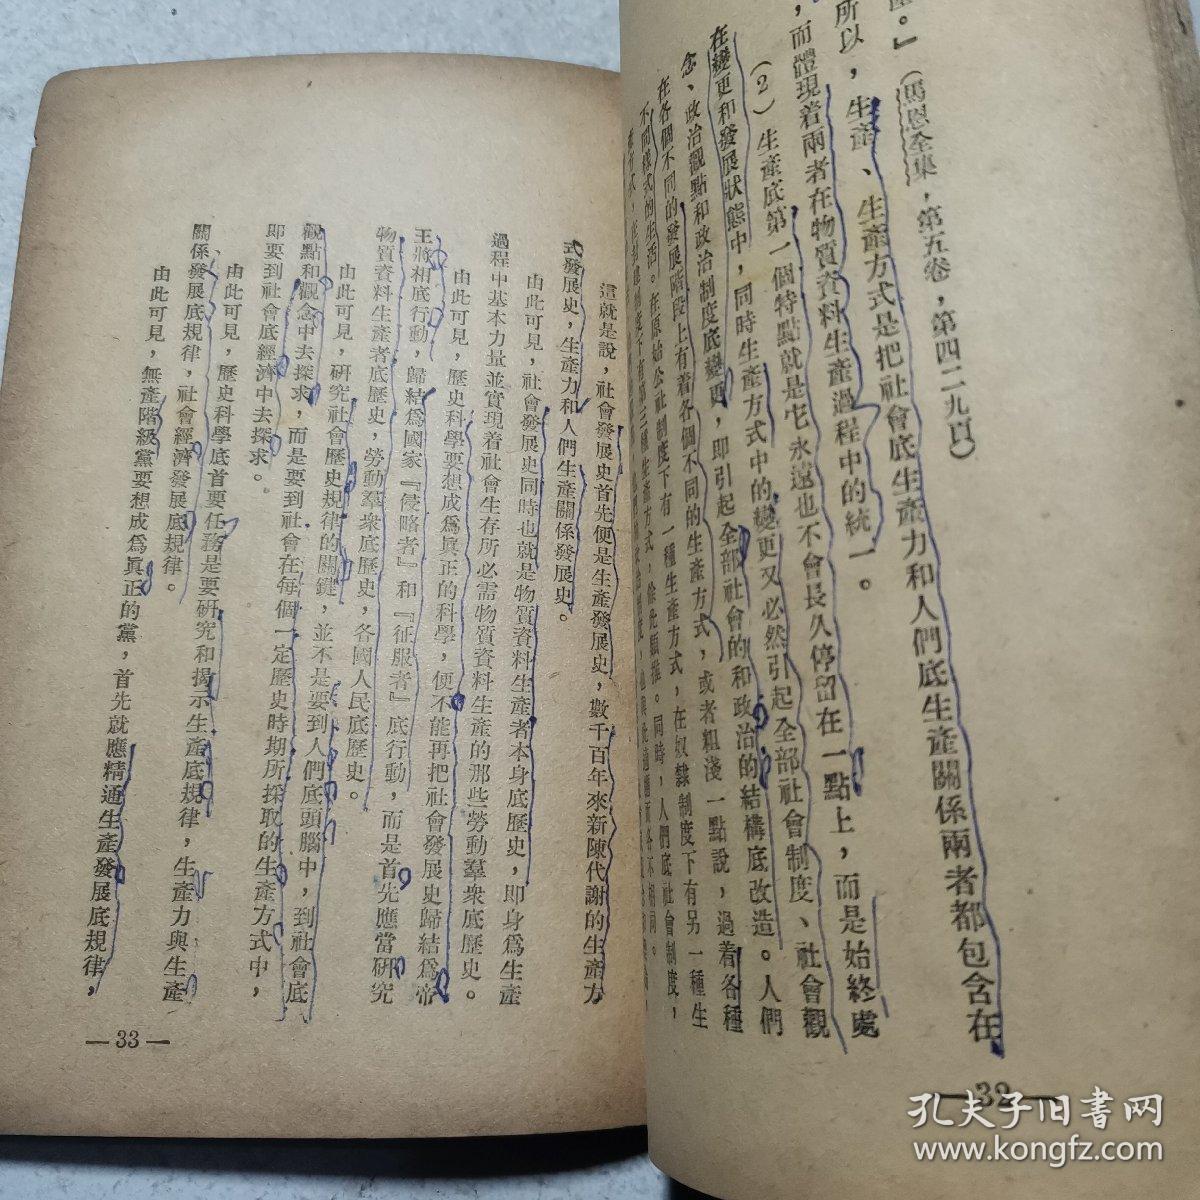 』（馬恩全集，第五卷，第四二九頁）
所以，生產、生產方式是把社會底生產力和人們底生產關係兩者都包含在
，而體現着兩者在物質資料生產過程中的統一。
（2）生產底第一個特點就是它永遠也不會長久停留在一點上，而是始終處
在變更和發展狀態中，同時生產方式中的變更又必然引起全部社會制度、社會觀
念、政治觀點和政治制度底變更，即引起全部社會的和政治的結構底改造。人們
在各個不同的發展階段上有着各個不同的生產方式，或者粗淺一點說，過着各種
不同樣式的生活。在原始公社制度下有一種生產方式，在奴隸制度下有另一種生
產方式，在封建制度下有第三種生產方式，餘此類推。同時，人們底社會制度，
— 32 —
這就是說，社會發展史首先便是生產發展史，數千百年來新陳代謝的生產方
式發展史，生產力和人們生產關係發展史。
由此可見，社會發展史同時也就是物質資料生產者本身底歷史，即身爲生產
過程中基本力量並實現着社會生存所必需物質資料生產的那些勞動羣衆底歷史。
由此可見，歷史科學要想成爲眞正的科學，便不能再把社會發展史歸結爲帝
王將相底行動，歸結爲國家『侵略者』和『征服者』底行動，而是首先應當研究
物質資料生產者底歷史，勞動羣衆底歷史，各國人民底歷史。
由此可見，研究社會歷史規律的關鍵，並不是要到人們底頭腦中，到社會底
觀點和觀念中去探求，而是要到社會在每個一定歷史時期所採取的生產方式中，
即要到社會底經濟中去探求。
由此可見，歷史科學底首要任務是要研究和揭示生產底規律，生產力與生產
關係發展底規律，社會經濟發展底規律。
由此可見，無產階級黨要想成爲眞正的黨，首先就應精通生產發展底規律，
— 33 —
孔夫子旧書网
www.kongfz.com